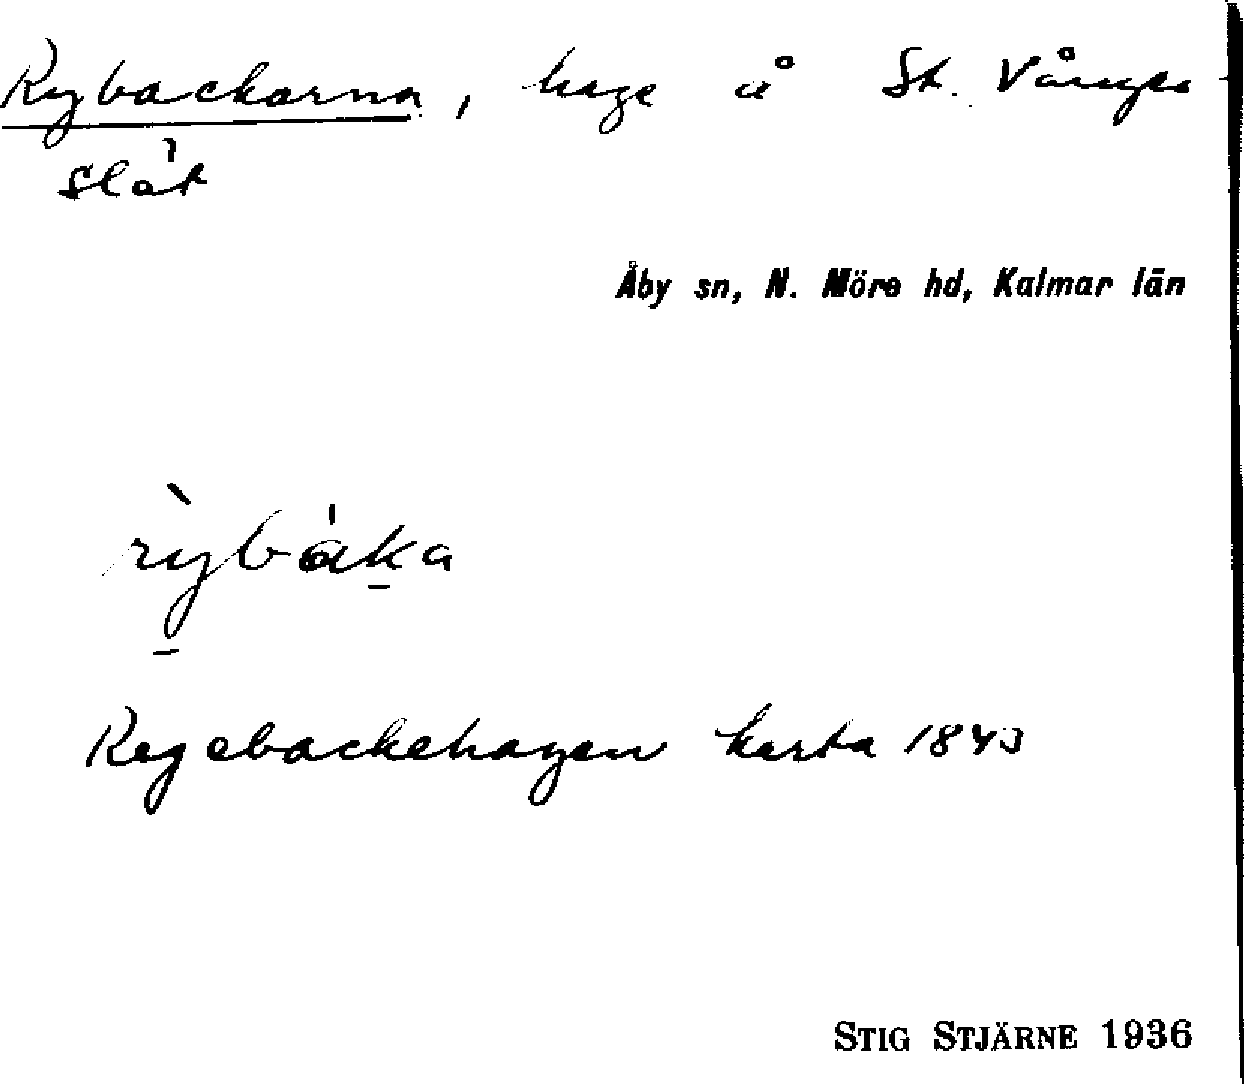 Rybackarna, hage å St. Vånga
slåt
Åby sn, N. Möre hd, Kalmar län
rỳbàka
Rygebackehagen karta 1843
STIG STJÄRNE 1936